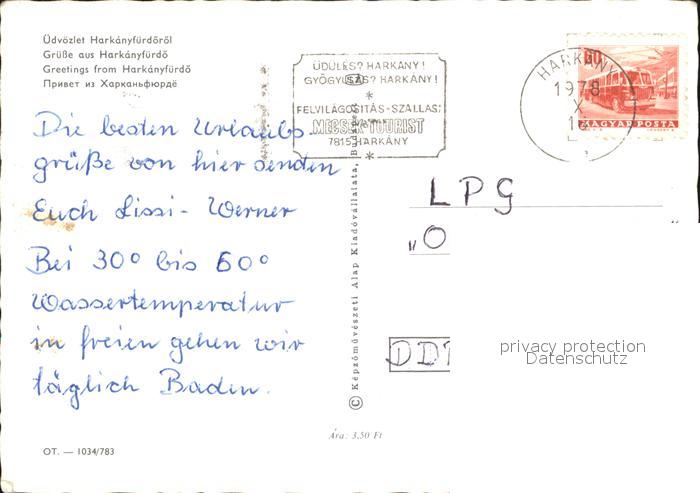 Üdvözlet Harkányfürdőről
Grüße aus Harkányfürdő
Greetings from Harkányfürdő
Привет из Харканьфюрдё
ÜDÜLÉS? HARKÁNY!
GYÓGYULÁS? HARKÁNY!
*
FELVILÁGOSITÁS-SZÁLLÁS:
MECSEK-TOURIST
7815 HARKÁNY
*
HARKÁNY
1978
X
60
MAGYAR POSTA
Die besten Urlaubs-
grüße von hier senden
Euch Lissi - Werner
Bei 30° bis 60°
Wassertemperatur
in freien gehen wir
täglich Baden.
OT. — 1034/783
© Képzőművészeti Alap Kiadóvállalata, Budapest
Ára: 3,50 Ft
LPG
„O
DDR
privacy protection
Datenschutz